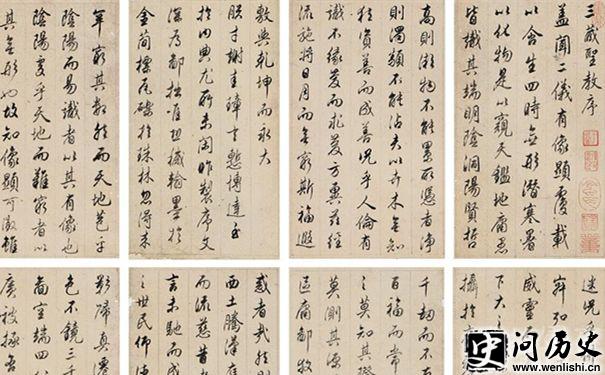 三藏聖教序
蓋聞二儀有像顯覆載
以含生四時無形潛寒暑
以化物是以窺天鑑地庸愚
皆識其端明陰洞陽賢哲
高則微物不能累所憑者淨
則濁類不能沾夫以卉木無知
猶資善而成善況乎人倫有
識不緣慶而求慶方冀茲經
流施將日月而無窮斯福遐
敷與乾坤而永大
朕才謝珪璋言慙博達至
於內典尤所未閑昨製序文
深為鄙拙唯恐穢翰墨於
金簡標瓦礫於珠林忽得來
罕窮其數然而天地苞乎
陰陽而易識者以其有像也
陰陽處乎天地而難窮者以
其無形也故知像顯可徵雖
迷況乎
弘
威靈
下大之
攝於
千劫而不
百福而
之莫知其際
莫測其源
區庸鄙投
惑者哉然則
西土騰漢庭
而流慈昔
言未馳而成
之世民仰德
影歸真遷
色不鏡三千
圖空端四八
廣被拯含
中问历史
www.wenlishi.cn